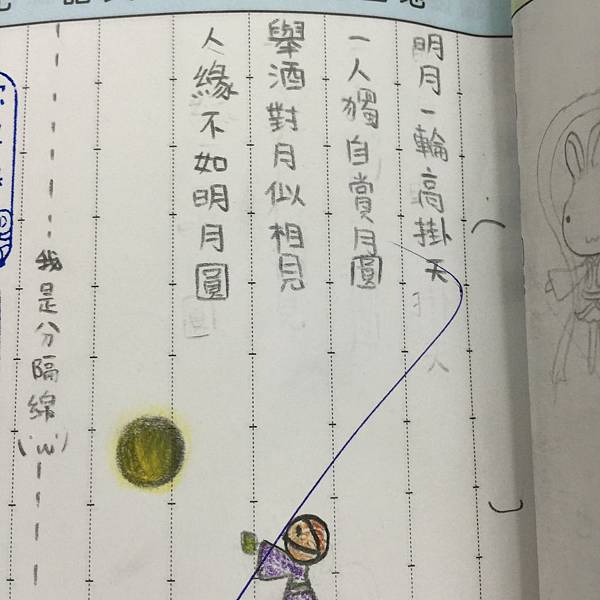 明月一輪高掛天
一人獨自賞月圓
舉酒對月似相見
人緣不如明月圓
我是分隔線(´ω`)